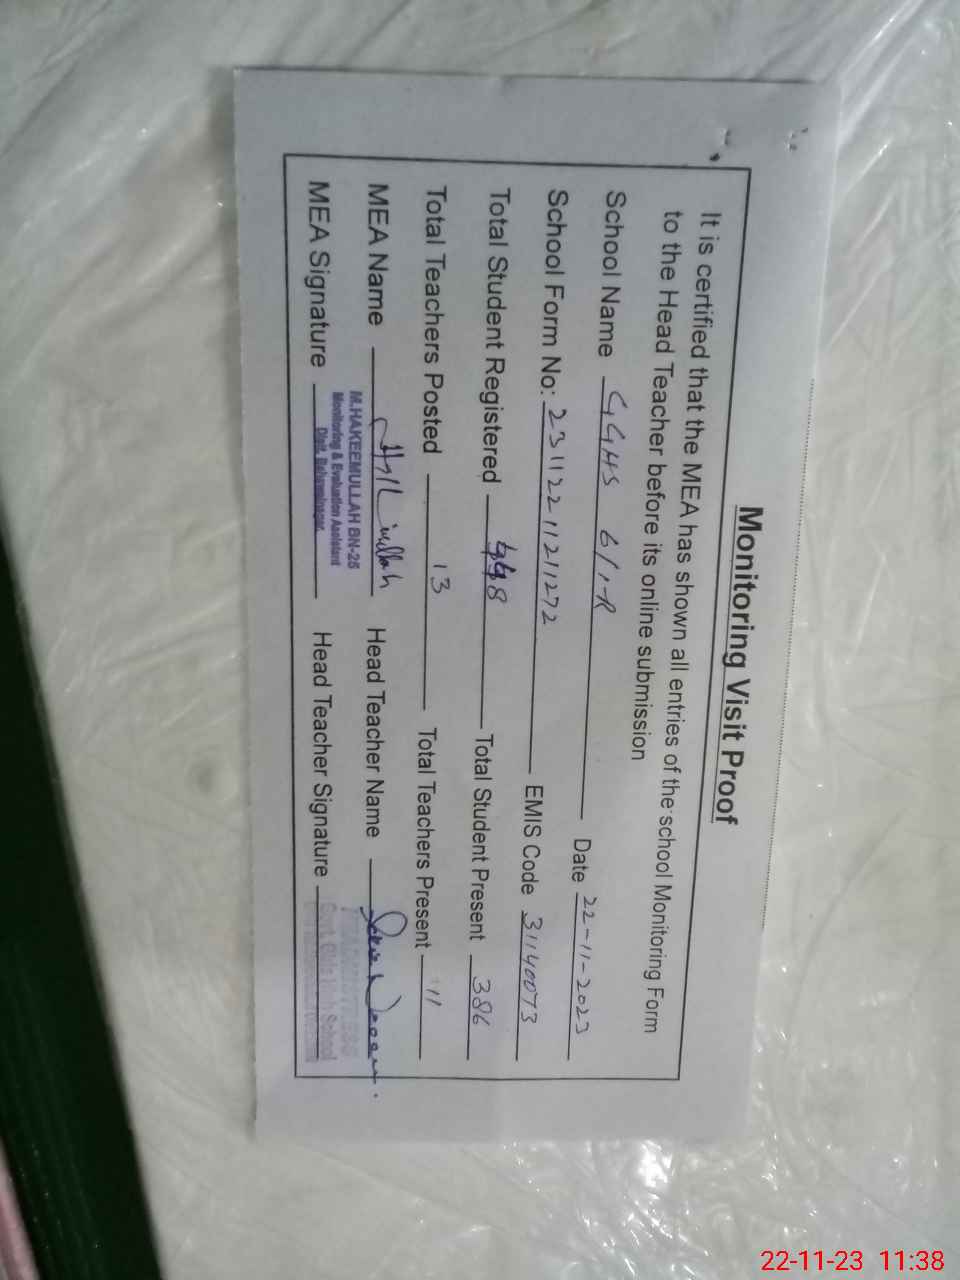 Monitoring Visit Proof
It is certified that the MEA has shown all entries of the school Monitoring Form
to the Head Teacher before its online submission
School Name GGHS 6/1-R Date 22-11-2023
School Form No: 23112211211272 EMIS Code 31140073
Total Student Registered 448 Total Student Present 386
Total Teachers Posted 13 Total Teachers Present 11
MEA Name Head Teacher Name
M.HAKEEMULLAH BN-25
MEA Signature Head Teacher Signature
Monitoring & Evaluation Assistant
Distt. Bahawalnagar
HEADMISTRESS
Govt. Girls High School
22-11-23 11:38